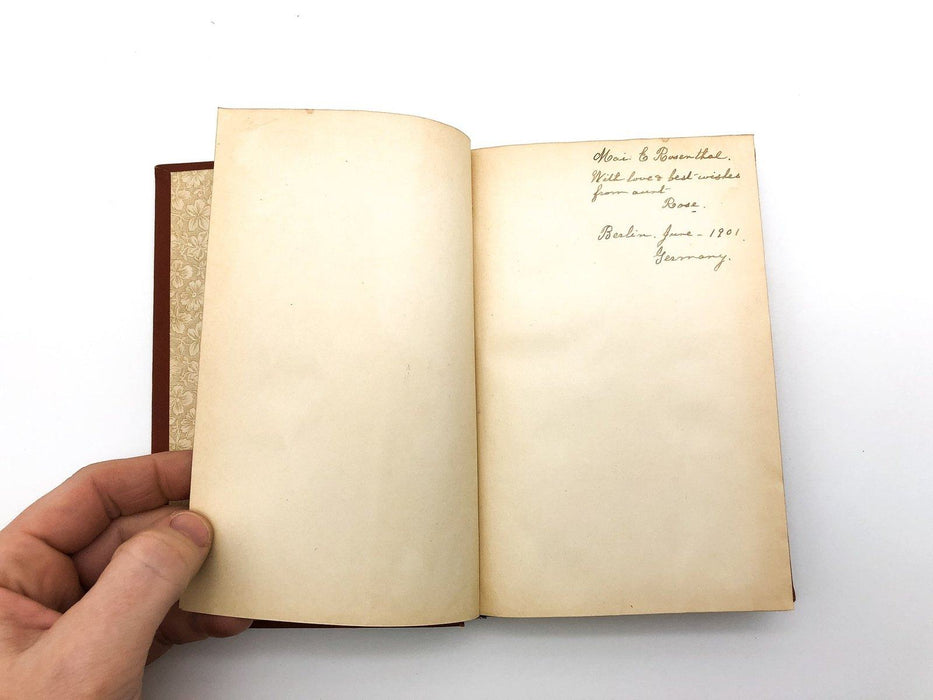 Mai. E Rosenthal.
With love & best wishes
from aunt
Rose.
Berlin. June - 1901.
Germany.